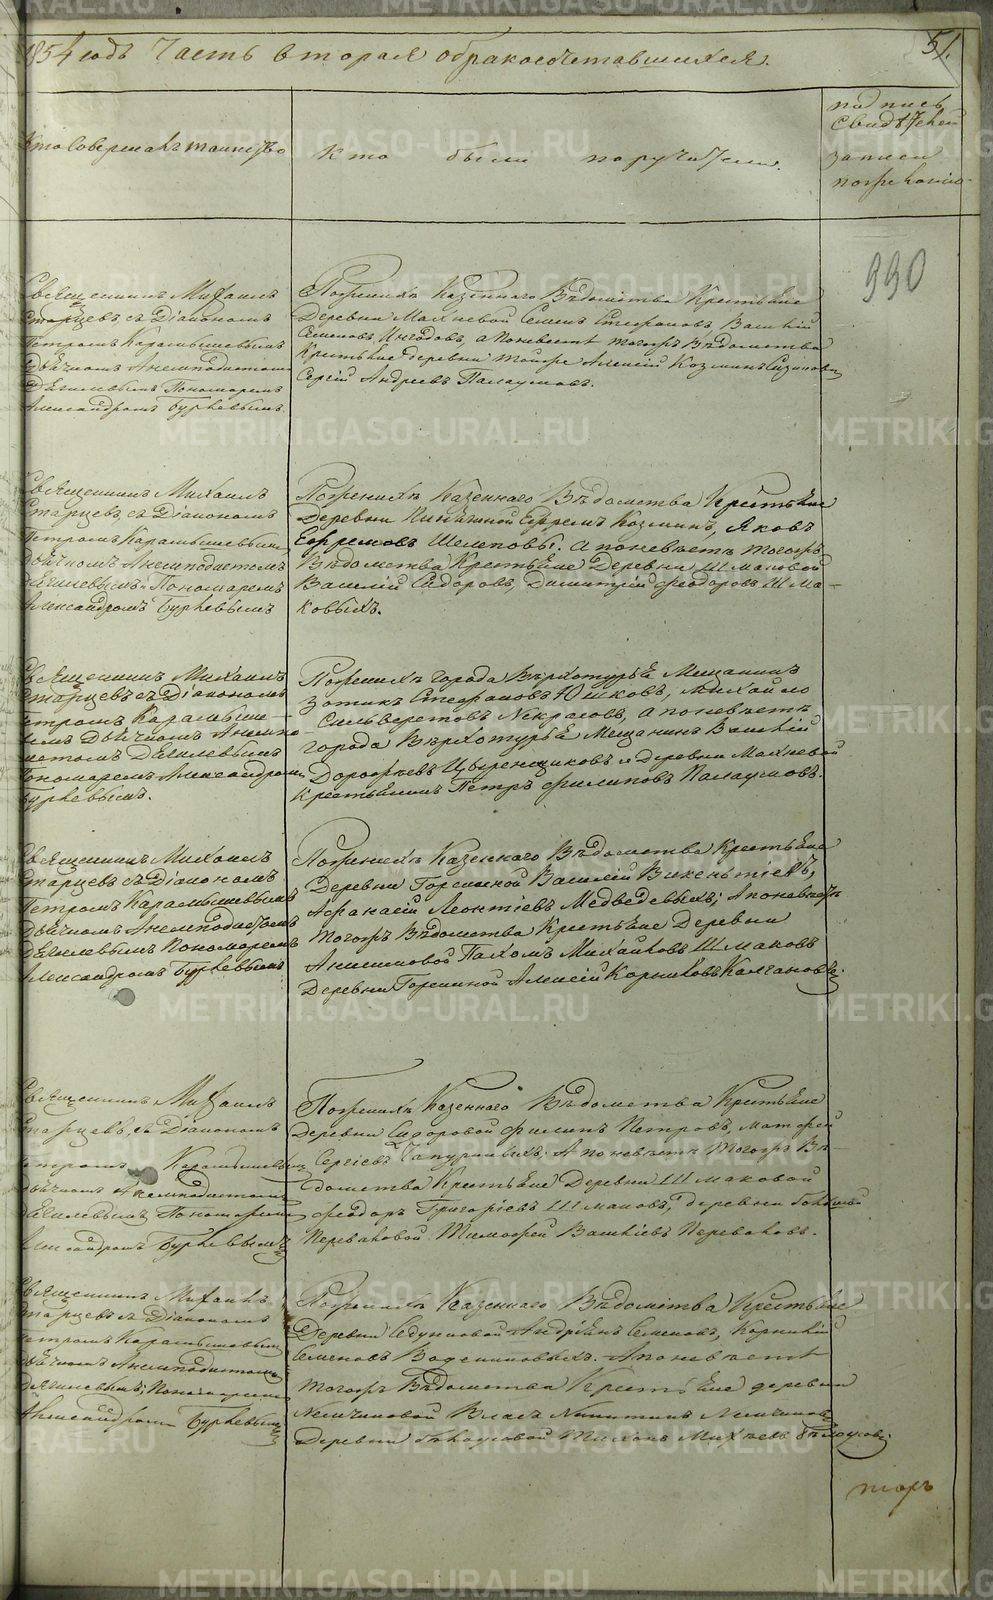 1854 годъ Часть вторая обракосочетавшихся.
51.
Кто Совершалъ таинство
Кто были поручители.
подпись
Свидѣтелей
записи
потребованію
990
Священникъ Михаилъ
Старцевъ съ Діакономъ
Петромъ Карамышевымъ
дьячкомъ Анемподистомъ
Дягилевымъ Пономаремъ
Александромъ Бурлевымъ
Поженихѣ Казеннаго Вѣдомства Крестьяне
Деревни Махневой Семенъ Стефановъ, Василій
Семеновъ, а Поневѣстѣ тогожъ Вѣдомства
Крестьяне деревни тойже Алексій Козминъ
Сергій Андреевъ Палаумовъ.
Священникъ Михаилъ
Старцевъ, съ Діакономъ
Петромъ Карамышевымъ
дьячкомъ Анемподистомъ
Дягилевымъ Пономаремъ
Александромъ Бурлевымъ
Поженихѣ Казеннаго Вѣдомства Крестьяне
Деревни Ефремъ Козминъ, Яковъ
Ефремовъ Шелеповы. а поневѣстѣ тогожъ
Вѣдомства Крестьяне Деревни Шмаковой
Василій Сидоровъ, Димитрій Феодоровъ Шма-
ковыхъ.
Священникъ Михаилъ
Старцевъ съ Діакономъ
Петромъ Карамыше-
вымъ Дьячкомъ Анемпо
дистомъ Дягилевымъ
Пономаремъ Александромъ
Бурлевымъ.
Поженихѣ города Верхотурья Мещанинъ
Зотикъ Стефановъ Юшковъ, Михайло
Сильверстовъ Некрасовъ, а поневѣстѣ
города Верхотурья Мещанинъ Василій
Дорофѣевъ и Деревни Махневой
Крестьянинъ Петръ Филиповъ Палаумовъ.
Священникъ Михаилъ
Старцевъ съ Діакономъ
Петромъ Карамышевымъ
дьячкомъ Анемподистомъ
Дягилевымъ Пономаремъ
Александромъ Бурлевымъ
Поженихѣ Казеннаго Вѣдомства Крестьяне
Деревни Горсткиной Василій Викентіевъ,
Афанасій Леонтіевъ Медведевыхъ; Апоневѣстѣ
тогожъ Вѣдомства Крестьяне Деревни
Анисимовой Пахомъ Михайловъ Шмаковъ
Деревни Алексій Корниловъ Калгановъ.
Священникъ Михаилъ
Старцевъ, съ Діакономъ
Петромъ Карамышевымъ
дьячкомъ Анемподистомъ
Дягилевымъ Пономаремъ
Александромъ Бурлевымъ
Поженихѣ Казеннаго Вѣдомства Крестьяне
Деревни Сидоровой Филипъ Петровъ, Матфей
Сергіевъ А поневѣстѣ Тогожъ Вѣ-
домства Крестьяне Деревни Шмаковой
Феодоръ Григоріевъ Шмаковъ, деревни
Переваловой Тимофей Василіевъ Переваловъ.
Священникъ Михаилъ
Старцевъ съ Діакономъ
Петромъ Карамышевымъ
дьячкомъ Анемподистомъ
Дягилевымъ, Пономаремъ
Александромъ Бурлевымъ
Поженихѣ Казеннаго Вѣдомства Крестьяне
Деревни Андріянъ Семеновъ, Корнилій
Семеновъ. Апоневѣстѣ
тогожъ Вѣдомства Крестьяне деревни
Немчиновой Власъ Никитинъ Немчиновъ
Деревни Бѣлоусовой Михѣевъ Бѣлоусовъ.